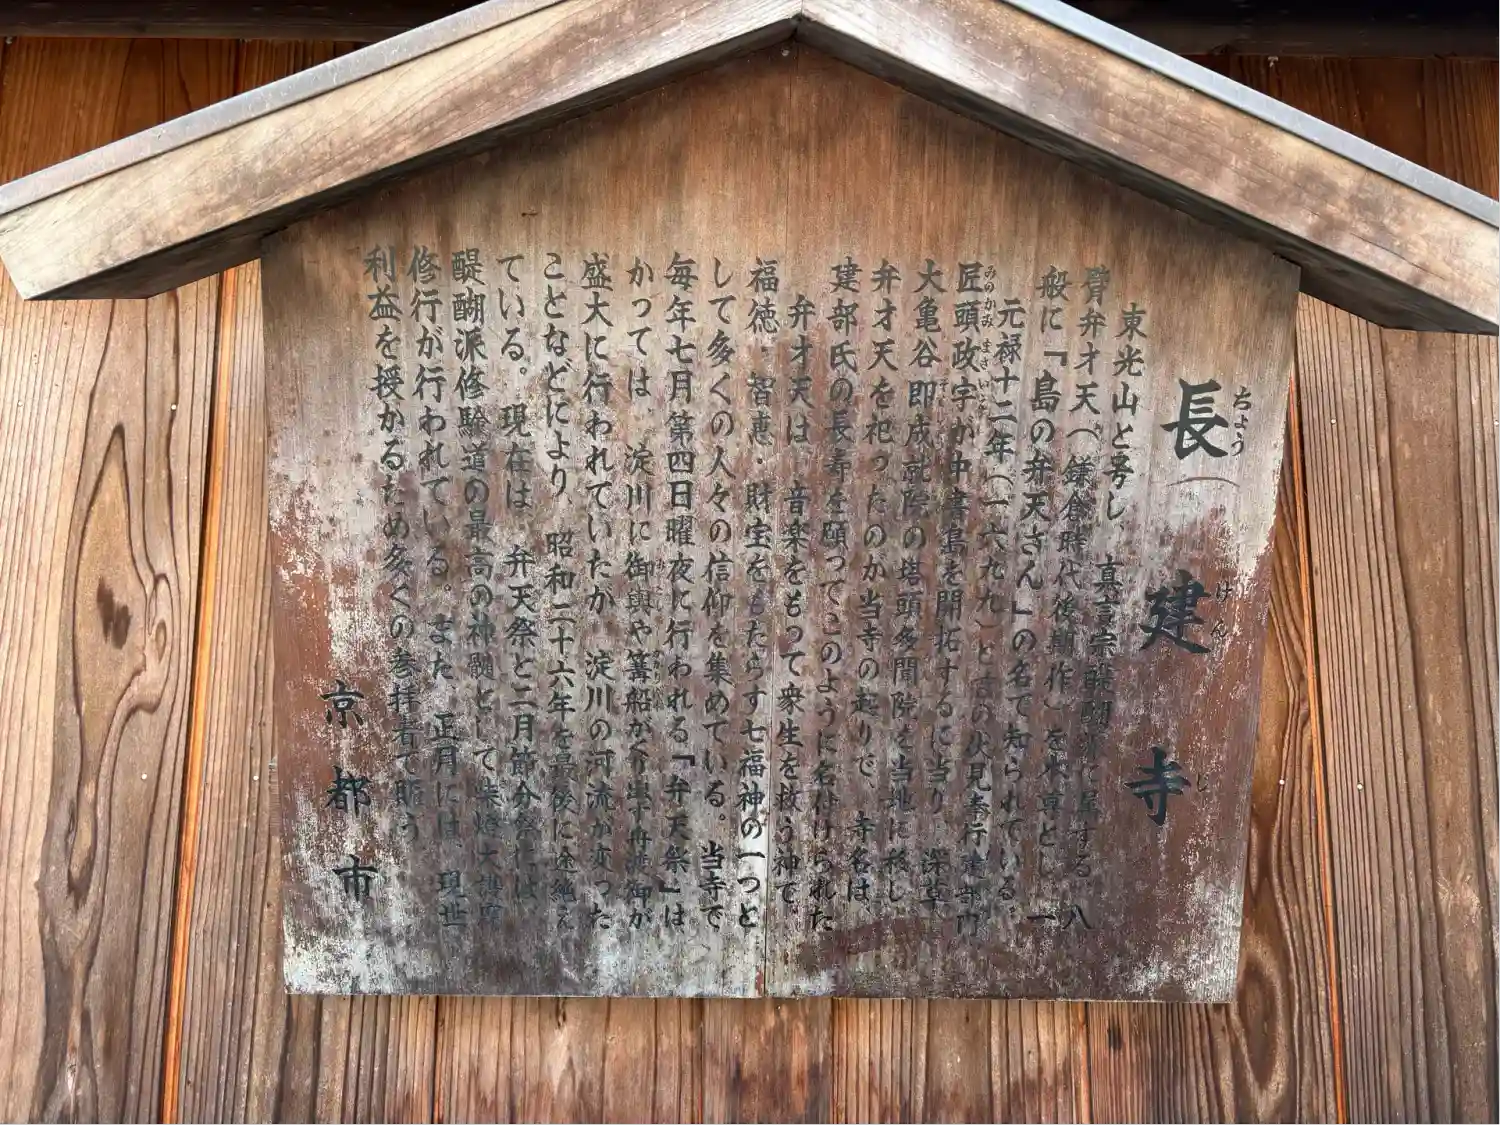 長建寺
ちょうけんじ
東光山と号し、真言宗醍醐派に属する。八
臂弁才天(鎌倉時代後期作)を本尊とし、一
般に「島の弁天さん」の名で知られている。
元禄十二年(一六九九)と言の伏見奉行建部内
匠頭政宇が中書島を開拓するに当り、深草
みのかみまさいえ
大亀谷即成就院の塔頭多聞院を当地に移し
弁才天を祀ったのが当寺の起りで、寺名は、
建部氏の長寿を願ってこのように名付けられた
弁才天は、音楽をもって衆生を救う神で、
福徳・智恵・財宝をもたらす七福神の一つと
して多くの人々の信仰を集めている。当寺で
毎年七月第四日曜夜に行われる「弁天祭」は
かっては、淀川に御輿や篝船がくり出す舟渡御が
盛大に行われていたが、淀川の河流が変った
ことなどにより、昭和二十六年を最後に途絶え
ている。現在は、弁天祭と二月節分祭には、
醍醐派修験道の最高の神髄として柴燈大護摩
修行が行われている。また、正月には、現世
利益を授かるため多くの参拝者で賑う
京都市